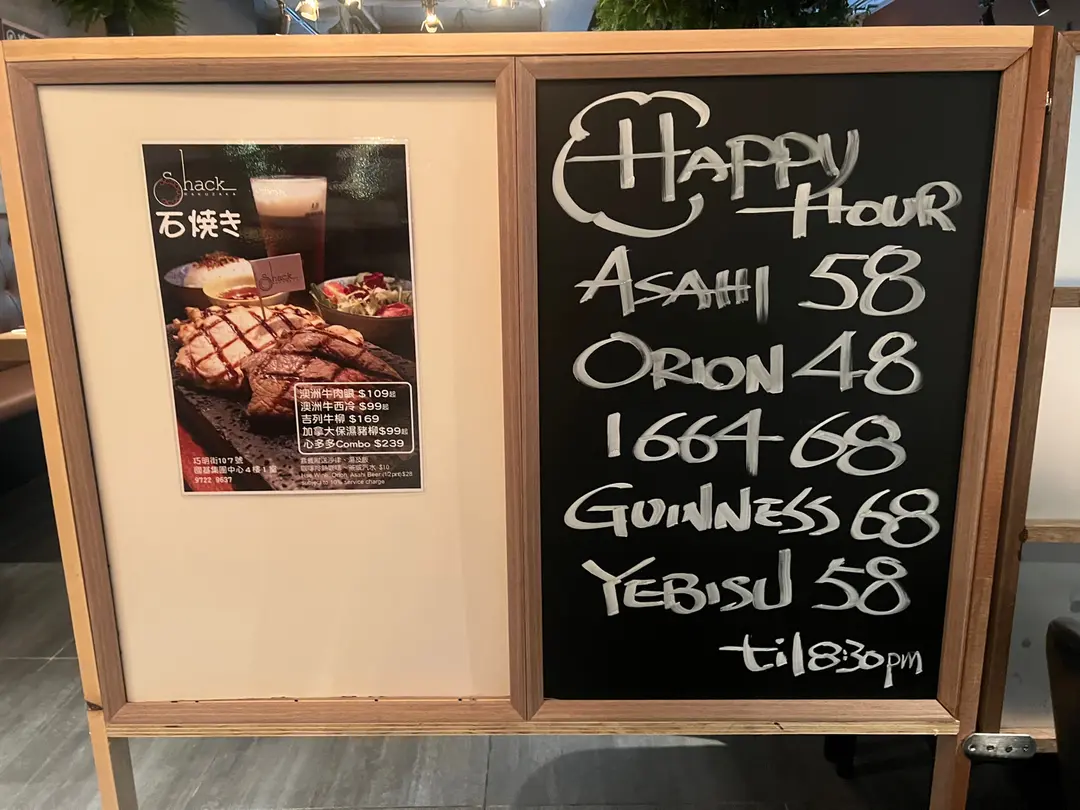 Shack
石焼き
Shack
澳洲牛肉眼 $109起
澳洲牛西冷 $99起
吉列牛柳 $169
加拿大保濕豬柳$99起
心多多Combo $239
巧明街107號
國基集團中心4樓1室
9722 0637
subject to 10% service charge
HAPPY
HOUR
ASAHI 58
ORION 48
1664 68
GUINNESS 68
YEBISU 58
til 8:30pm